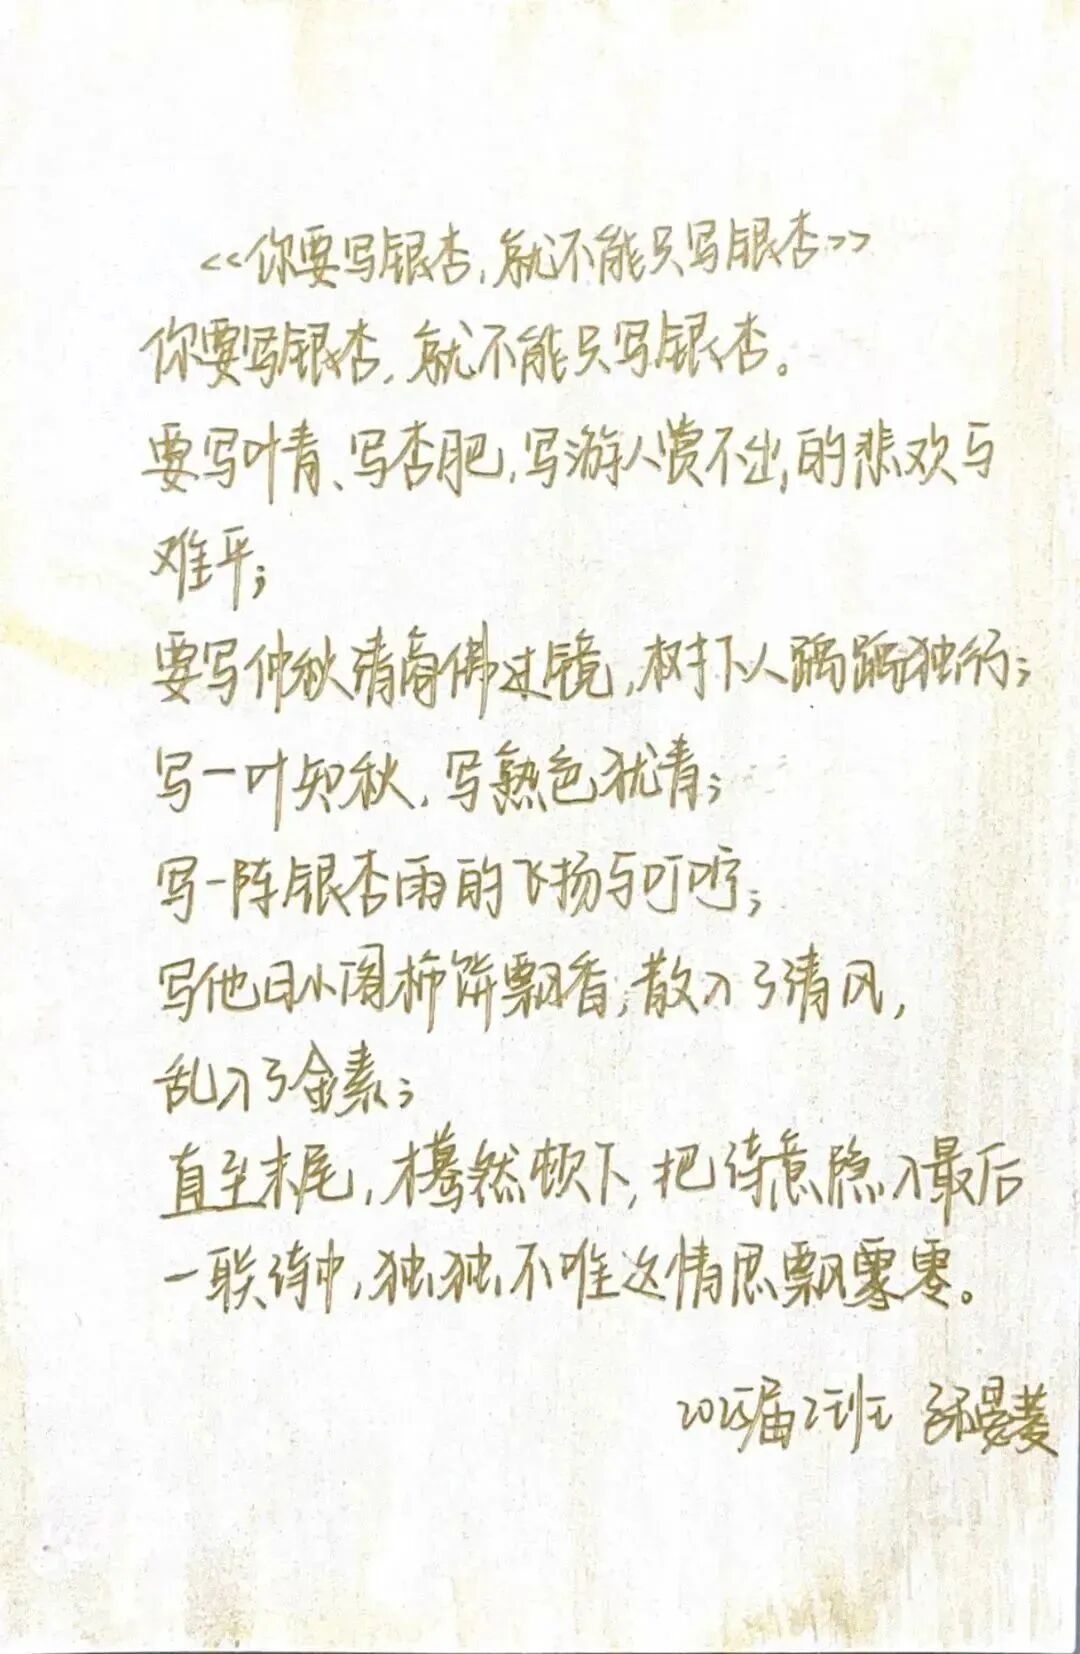 <<你要写银杏,就不能只写银杏>>
你要写银杏,就不能只写银杏。
要写叶青、写杏肥,写游人赏不出的悲欢与
难平;
要写仲秋清商佛过镜,树下人踽踽独行;
写一叶知秋,写熟色犹青;
写一阵银杏雨的飞扬与叮咛;
写他日小阁柿饼飘香,散入了清风,
乱入了金素;
直至末尾,蓦然顿下,把诗意隐入最后
一联诗中,独独不唯这情思飘零零。
2025届2班 张晏菱